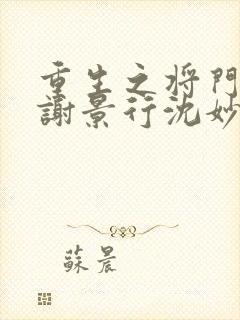 重生之将門
謝景行沈妙
蘇晨